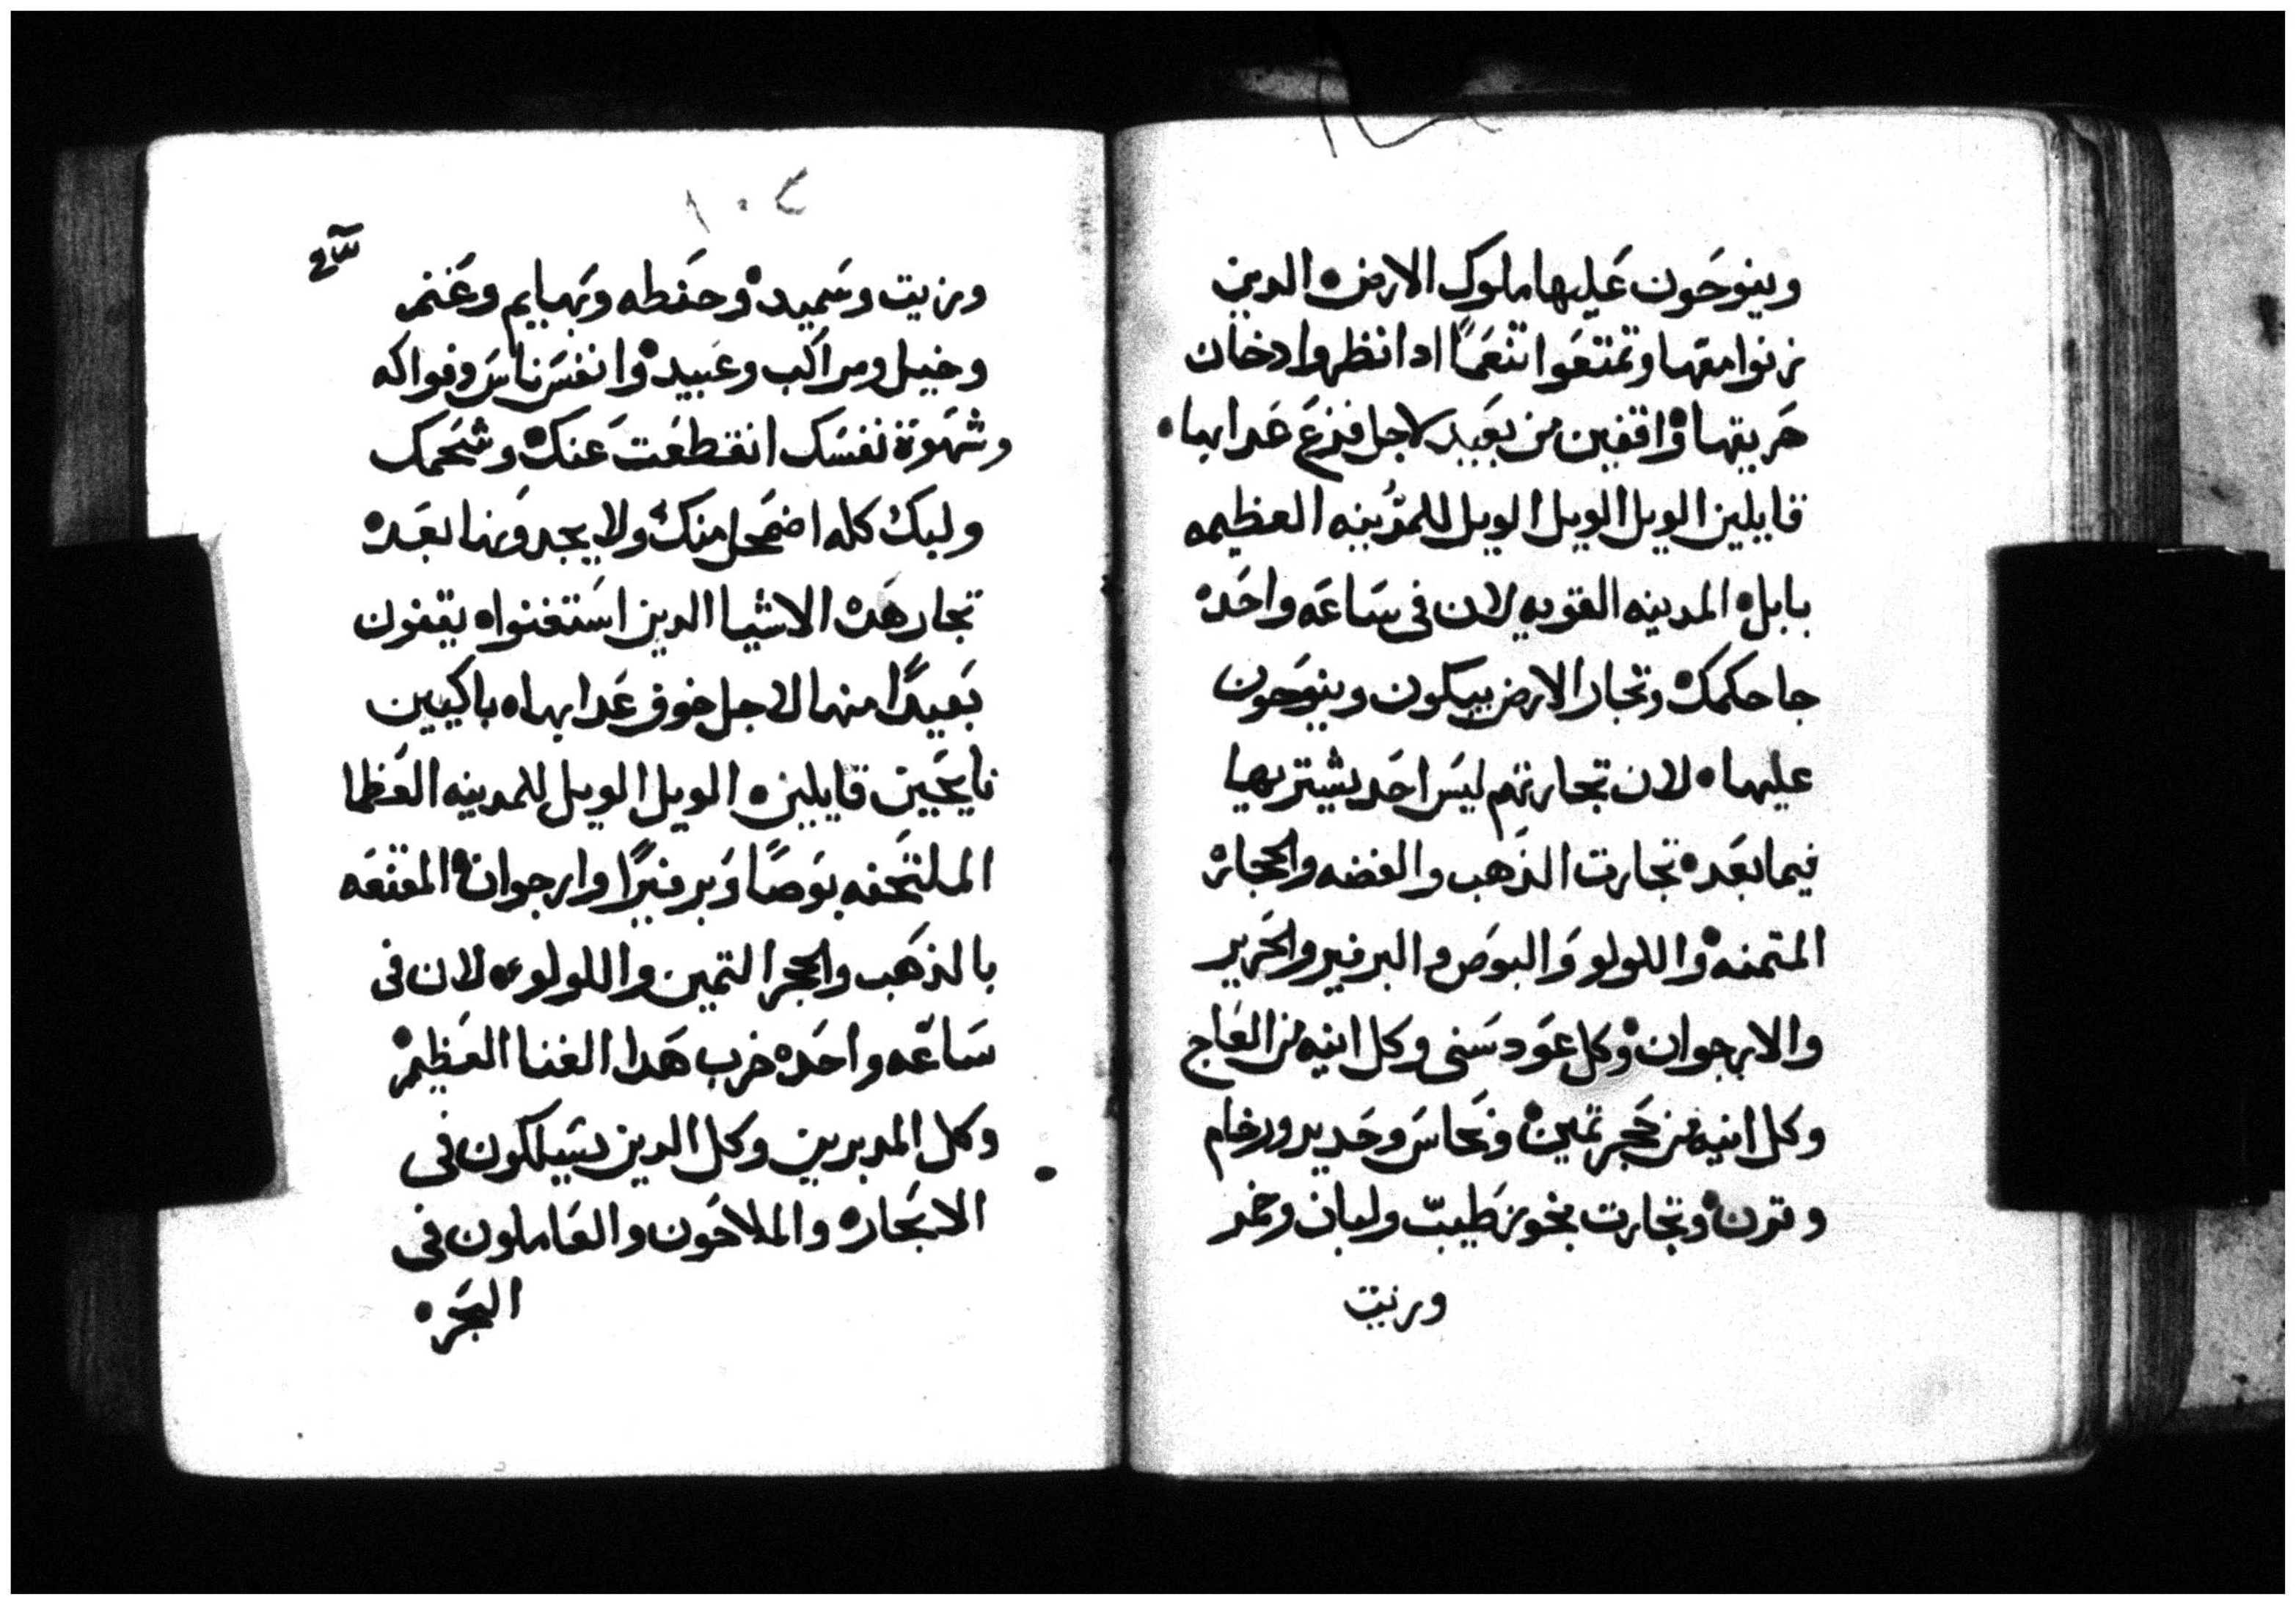 وينوحون عليها ملوك الارض ٥ الدين
زنوا معها وتمتعوا تنعماً ادا نظروا دخان
حريتها ٥ واقفين من بعيد لاجل فزع عدابها ٠
قايلين الويل الويل الويل للمدينه العظيمه
بابل ٥ المدينه القويه لان في ساعه واحده
جا حكمك ٥ وتجار الارض يبكون وينوحون
عليها ٠ لان تجارتهم ليس احد يشتريها
فيما بعد ٥ تجارت الذهب والفضه والحجاره
المتمنه ٥ واللولو والبوص والبرفير والحرير
والارجوان ٥ وكل عود سنى وكل انيه من العاج
وكل انيه من حجر تمين ٥ ونحاس وحديد ورخام
وقرن ٥ وتجارت بخور طيب ولبان وخمر
وزيت
١٠٢
وزيت وسميد ٥ وحنطه وبهايم وغنم
وخيل ومراكب وعبيد ٥ وانفس ناس وفواكه
وشهوة نفسك انقطعت عنك ٥ وشحمك
ولبك كله اضمحل منك ٥ ولا يجدونها بعد ٥
تجار هده الاشيا الدين استغنوا ٥ يقفون
بعيداً منها لاجل خوف عدابها ٥ باكيين
نايحين قايلين ٥ الويل الويل للمدينه العظما
الملتحفه بوصاً وبرفيراً وارجوان ٥ المقنعه
بالذهب والحجر التمين واللولو ٥ لان في
ساعه واحده خرب هدا الغنا العظيم ٥
وكل المدبرين وكل الدين يسلكون في
الابحاره والملاحون والعاملون في
البحر ٥